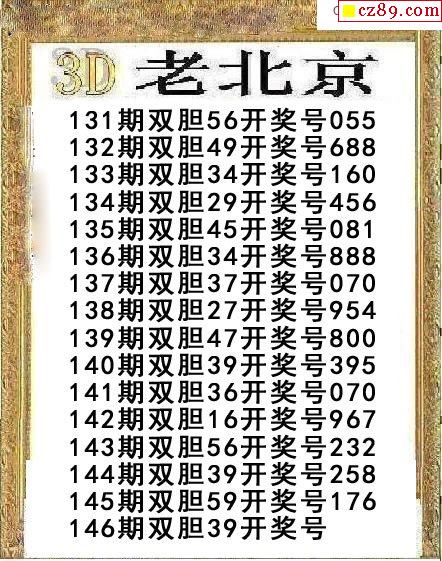 cz89.com
3D 老北京
131期双胆56开奖号055
132期双胆49开奖号688
133期双胆34开奖号160
134期双胆29开奖号456
135期双胆45开奖号081
136期双胆34开奖号888
137期双胆37开奖号070
138期双胆27开奖号954
139期双胆47开奖号800
140期双胆39开奖号395
141期双胆36开奖号070
142期双胆16开奖号967
143期双胆56开奖号232
144期双胆39开奖号258
145期双胆59开奖号176
146期双胆39开奖号